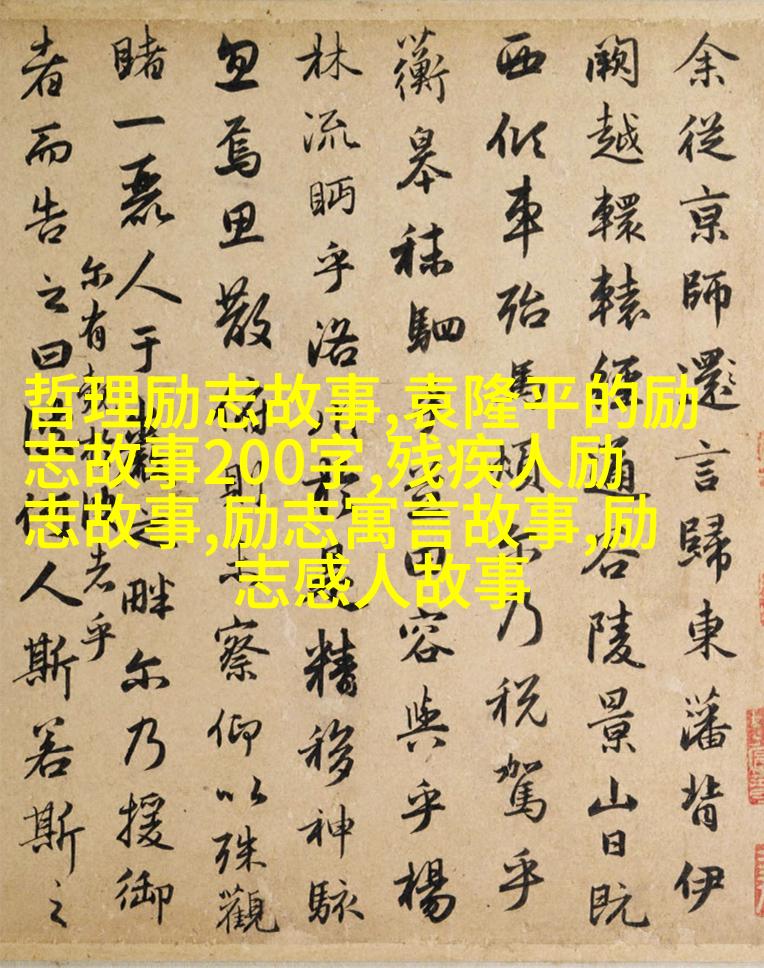 余從京師還言歸東藩背伊
闕越轘轅經通谷陵景山日既
西傾車殆馬煩尔乃税駕乎
蘅皋秣駟乎芝田容與乎楊
林流眄乎洛川於是精移神駭
忽焉思散俯則未察仰以殊觀
睹一麗人于巖之畔尔乃援御
者而告之曰彼何人斯若斯之
尔有覿於彼者乎
哲理励志故事,袁隆平的励
志故事200字,残疾人励
志故事,励志寓言故事,励
志感人故事